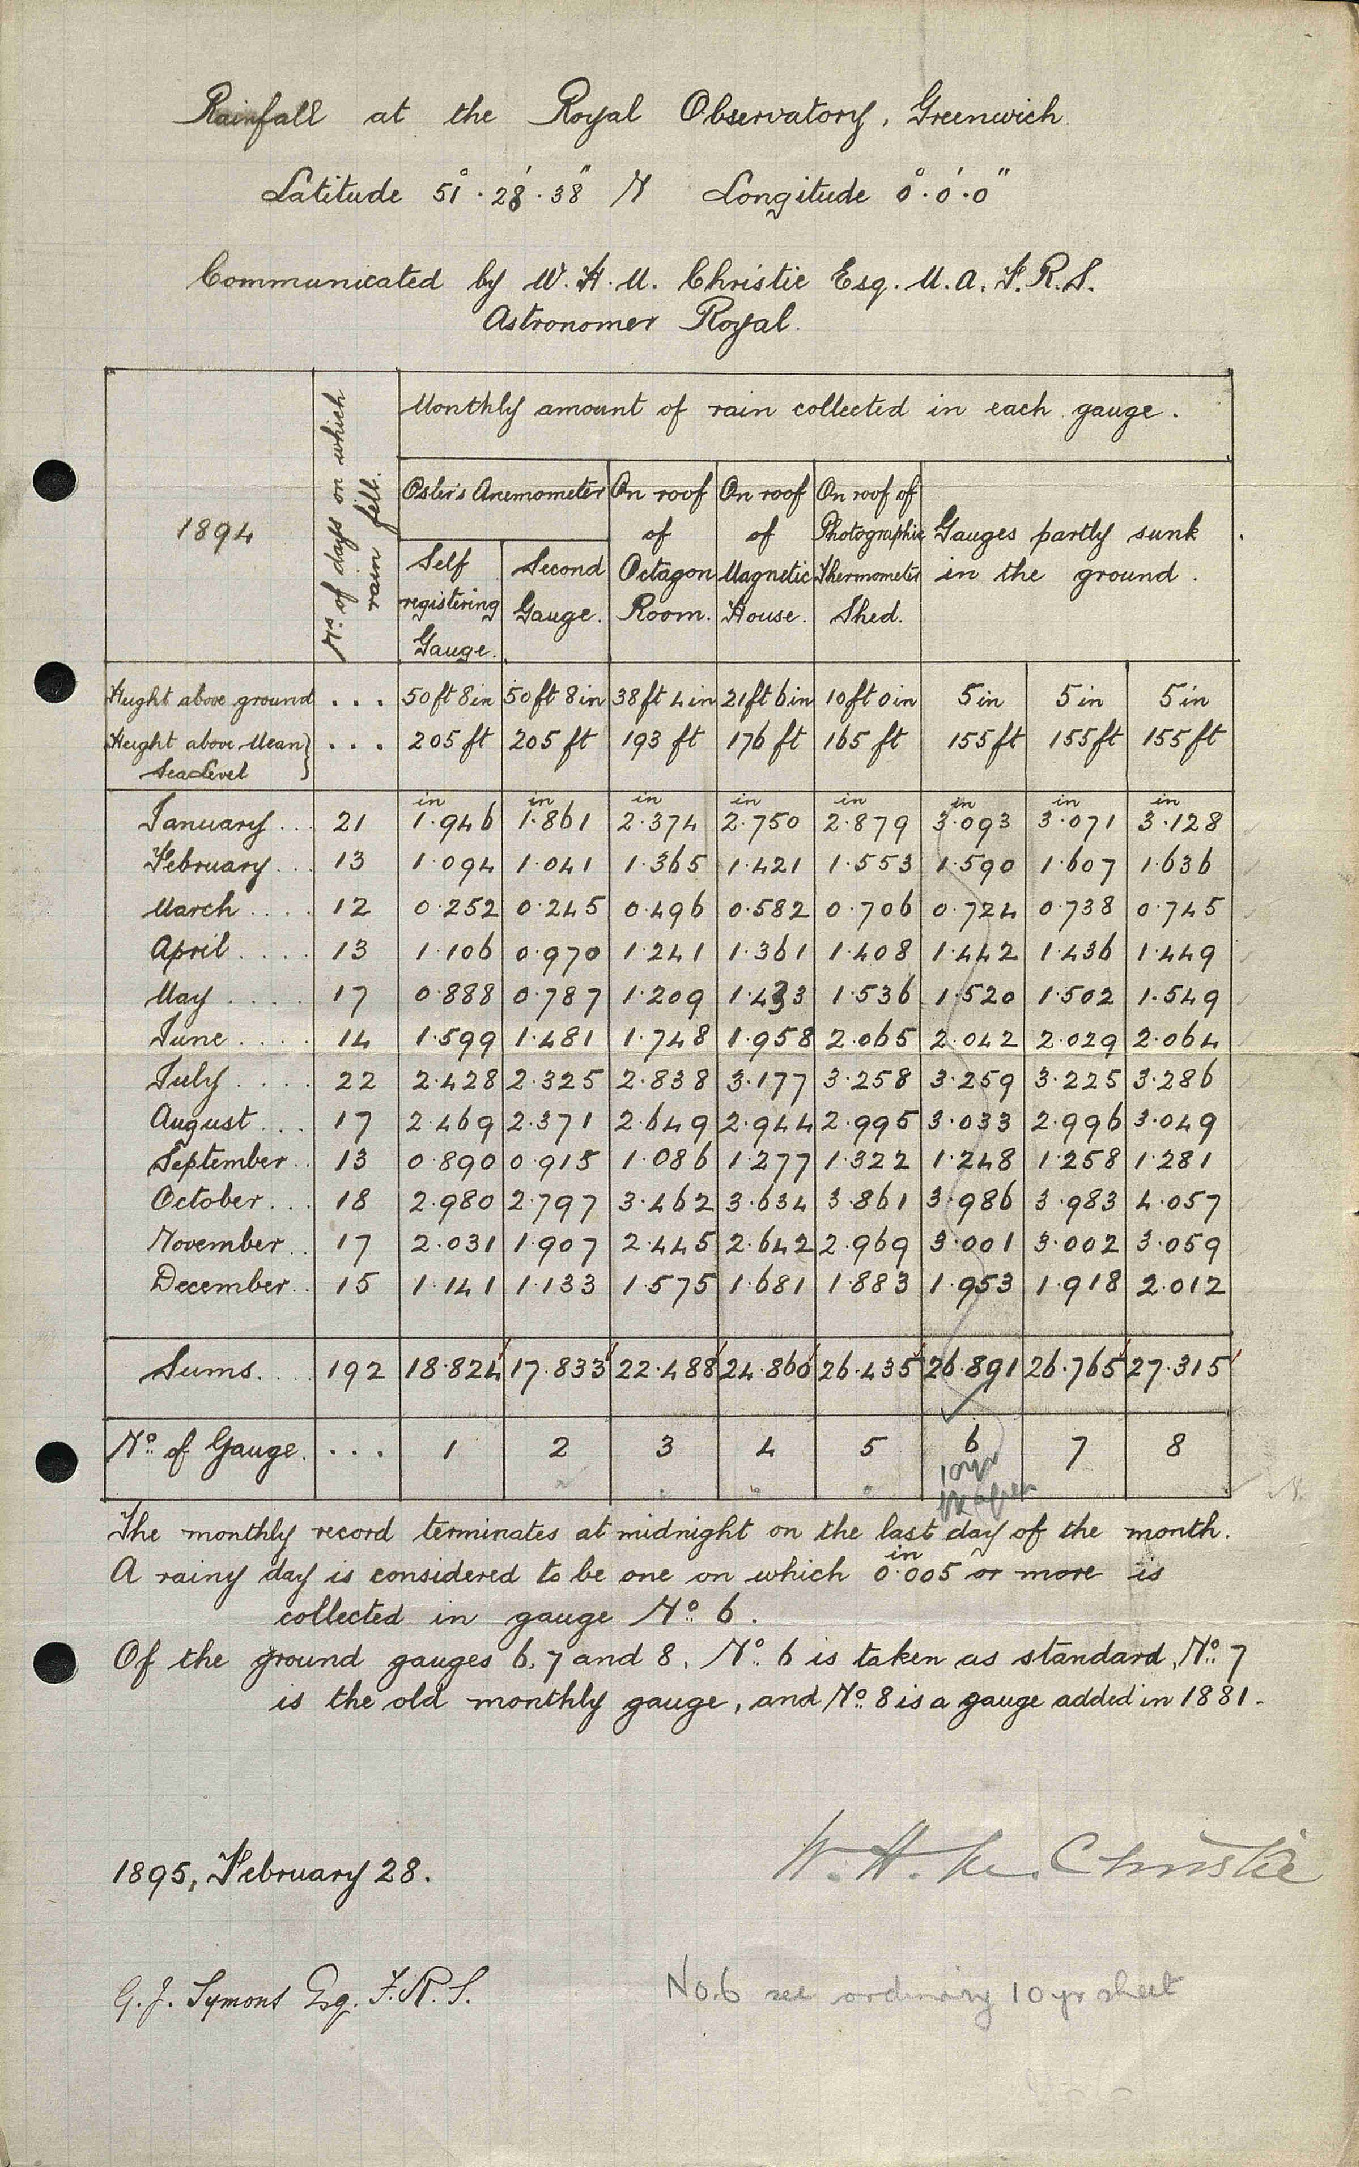 Rainfall at the Royal Observatory, Greenwich
Latitude 51°.28'.38" N Longitude 0°.0'.0"
Communicated by W. H. M. Christie Esq. M.A. F.R.S.
Astronomer Royal.
1894
No. of days on which rain fell.
Monthly amount of rain collected in each gauge.
Osler's Anemometer
Self registering Gauge.
Second Gauge.
On roof of Octagon Room.
On roof of Magnetic House.
On roof of Photographic Thermometer Shed.
Gauges partly sunk in the ground.
Height above ground ... 50 ft 8 in 50 ft 8 in 38 ft 4 in 21 ft 6 in 10 ft 0 in 5 in 5 in 5 in
Height above Mean Sea Level } ... 205 ft 205 ft 193 ft 176 ft 165 ft 155 ft 155 ft 155 ft
in in in in in in in in
January .. 21 1.946 1.861 2.374 2.750 2.879 3.093 3.071 3.128
February .. 13 1.094 1.041 1.365 1.421 1.553 1.590 1.607 1.636
March .... 12 0.252 0.245 0.496 0.582 0.706 0.724 0.738 0.745
April .... 13 1.106 0.970 1.241 1.361 1.408 1.442 1.436 1.449
May .... 17 0.888 0.787 1.209 1.433 1.536 1.520 1.502 1.549
June .... 14 1.599 1.481 1.748 1.958 2.065 2.042 2.029 2.064
July .... 22 2.428 2.325 2.838 3.177 3.258 3.259 3.225 3.286
August ... 17 2.469 2.371 2.649 2.944 2.995 3.033 2.996 3.049
September .. 13 0.890 0.915 1.086 1.277 1.322 1.248 1.258 1.281
October ... 18 2.980 2.797 3.462 3.634 3.861 3.986 3.983 4.057
November .. 17 2.031 1.907 2.445 2.642 2.969 3.001 3.002 3.059
December .. 15 1.141 1.133 1.575 1.681 1.883 1.953 1.918 2.012
Sums.. 192 18.824 17.833 22.488 24.860 26.435 26.891 26.765 27.315
No. of Gauge. ... 1 2 3 4 5 6 7 8
10 yr
The monthly record terminates at midnight on the last day of the month.
A rainy day is considered to be one on which 0.005 in or more is
collected in gauge No. 6.
Of the ground gauges 6, 7 and 8, No. 6 is taken as standard, No. 7
is the old monthly gauge, and No. 8 is a gauge added in 1881.
W. H. M. Christie
1895, February 28.
G. J. Symons Esq. F.R.S.
No. 6 see ordinary 10 yr sheet